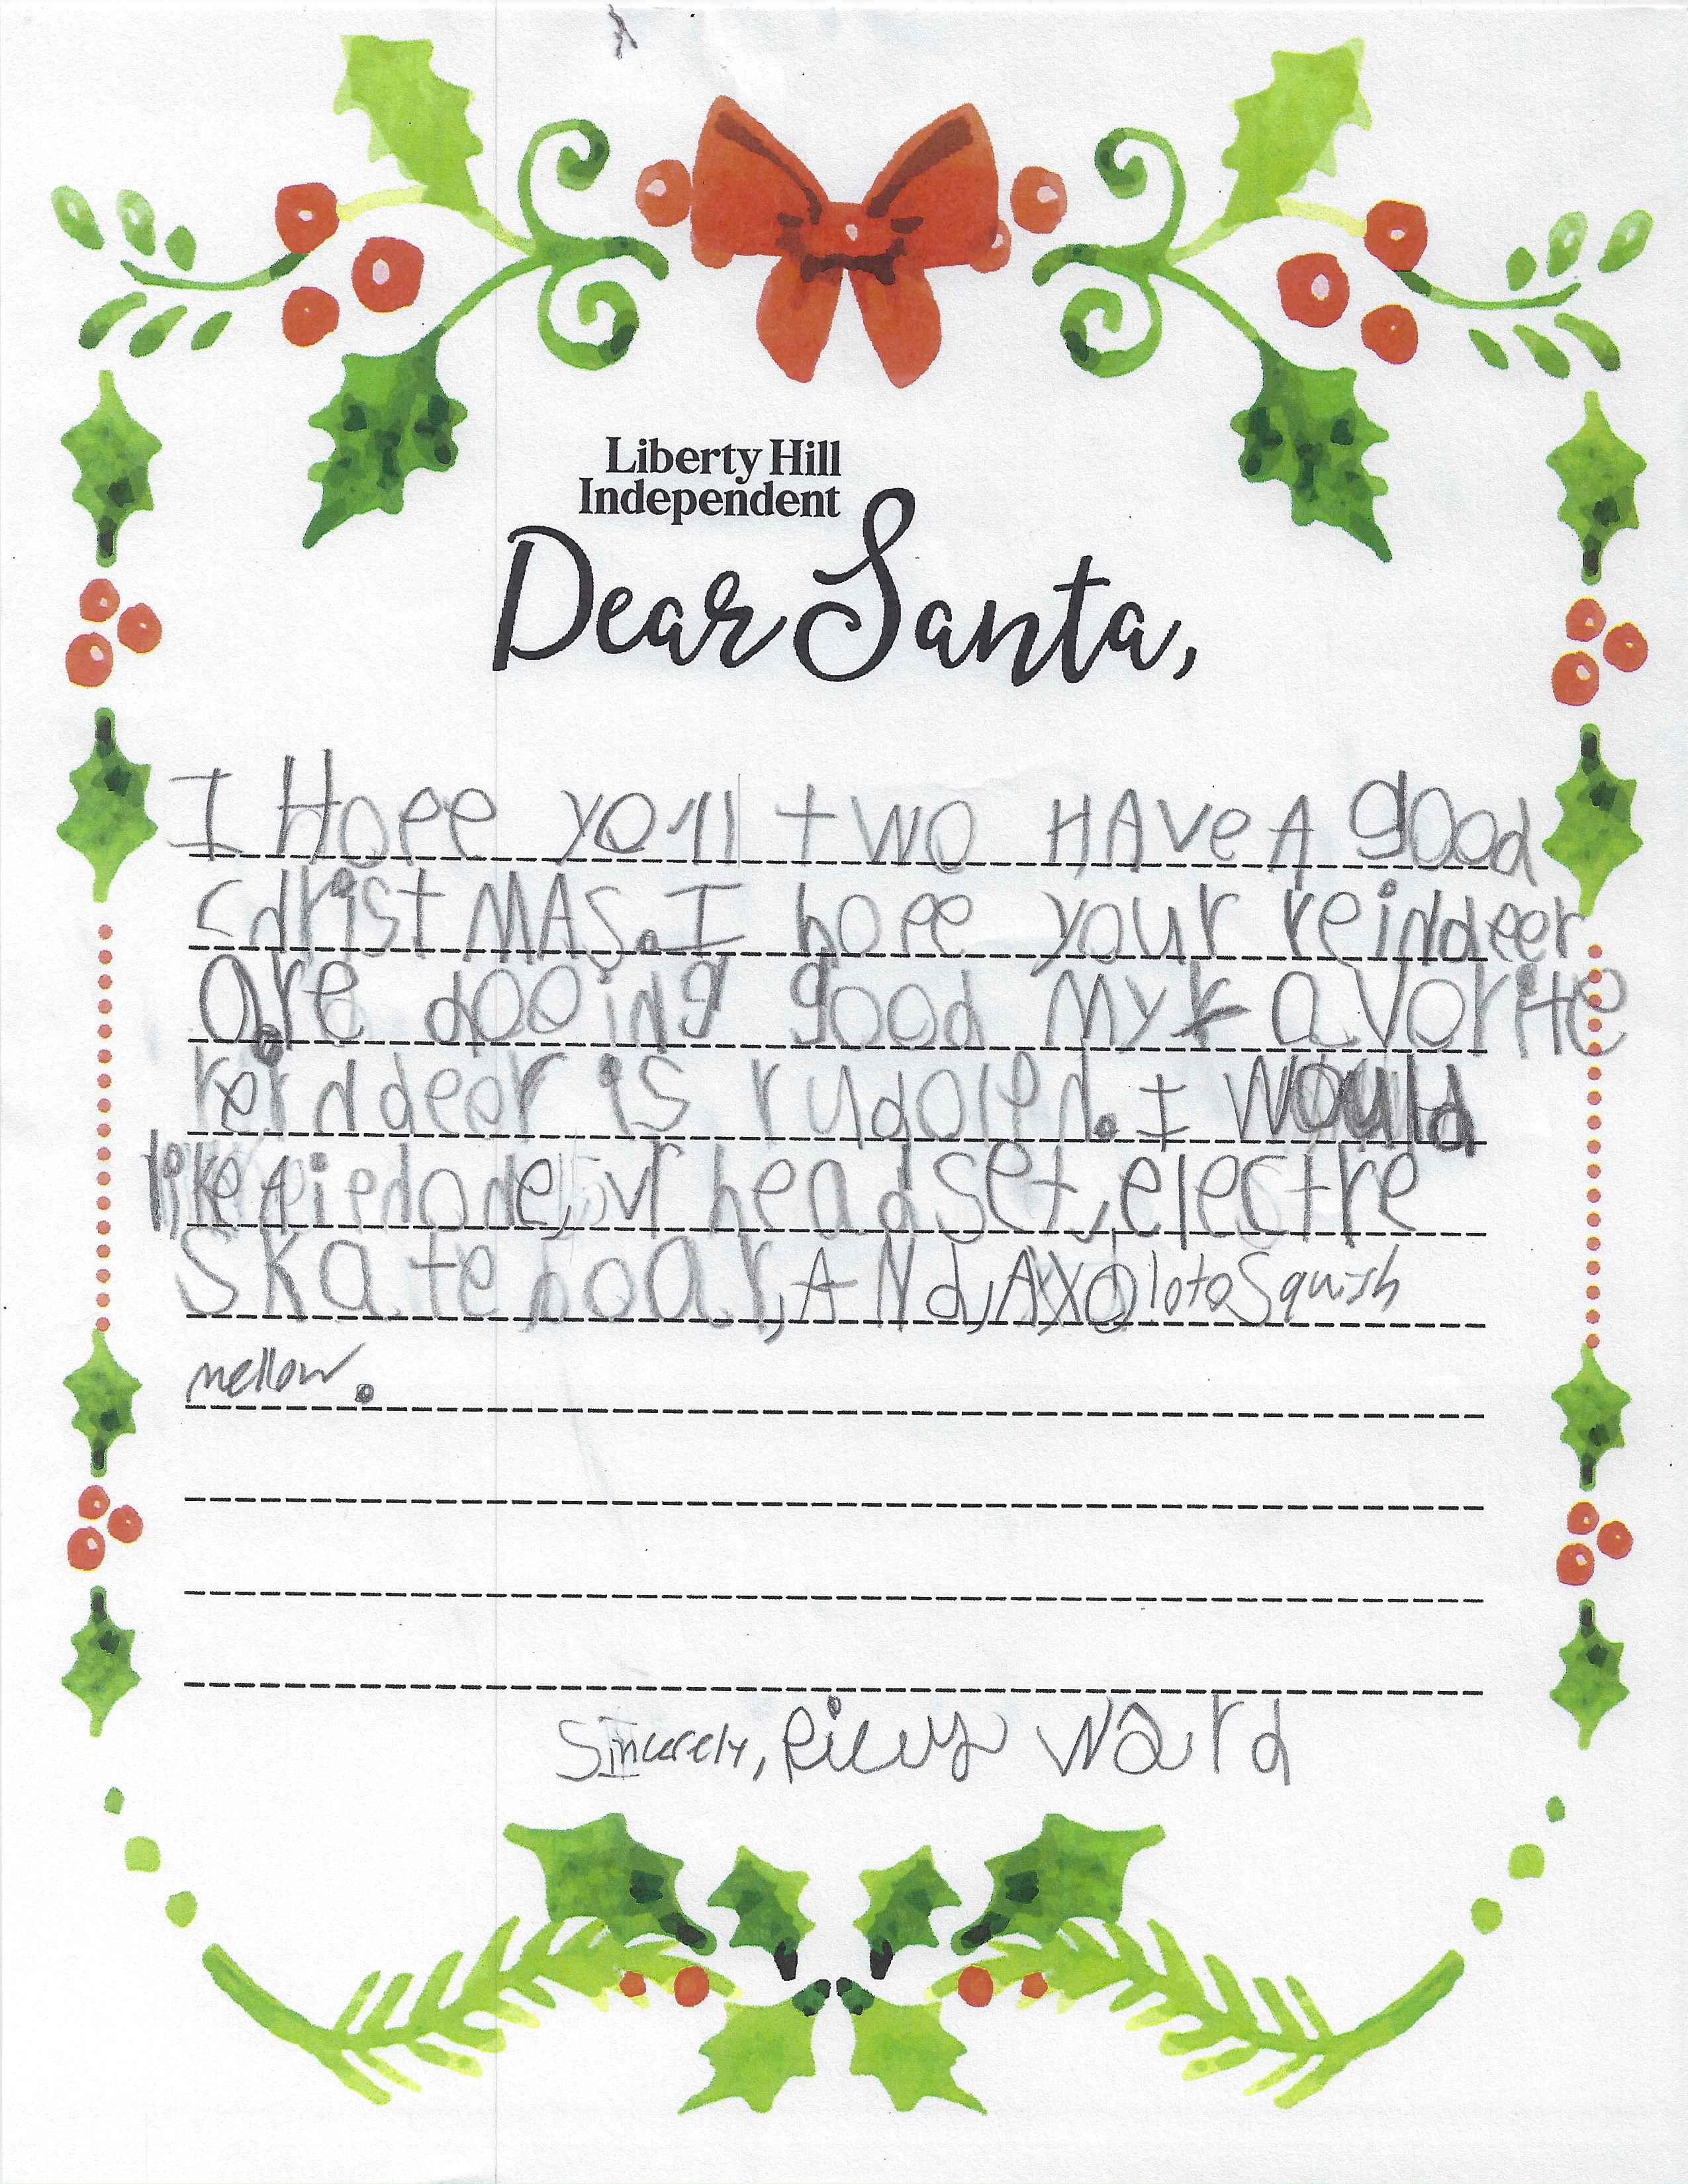 Liberty Hill
Independent
Dear Santa,
I Hope you'll two HAve A good
christMAS. I hope your reindeer
are dooing good my favorite
reinddeer is rudolph. I would
like vr headset, electre
skateboar, ANd, AXolotoSquish
mellow.
Sincerely, Riley Ward